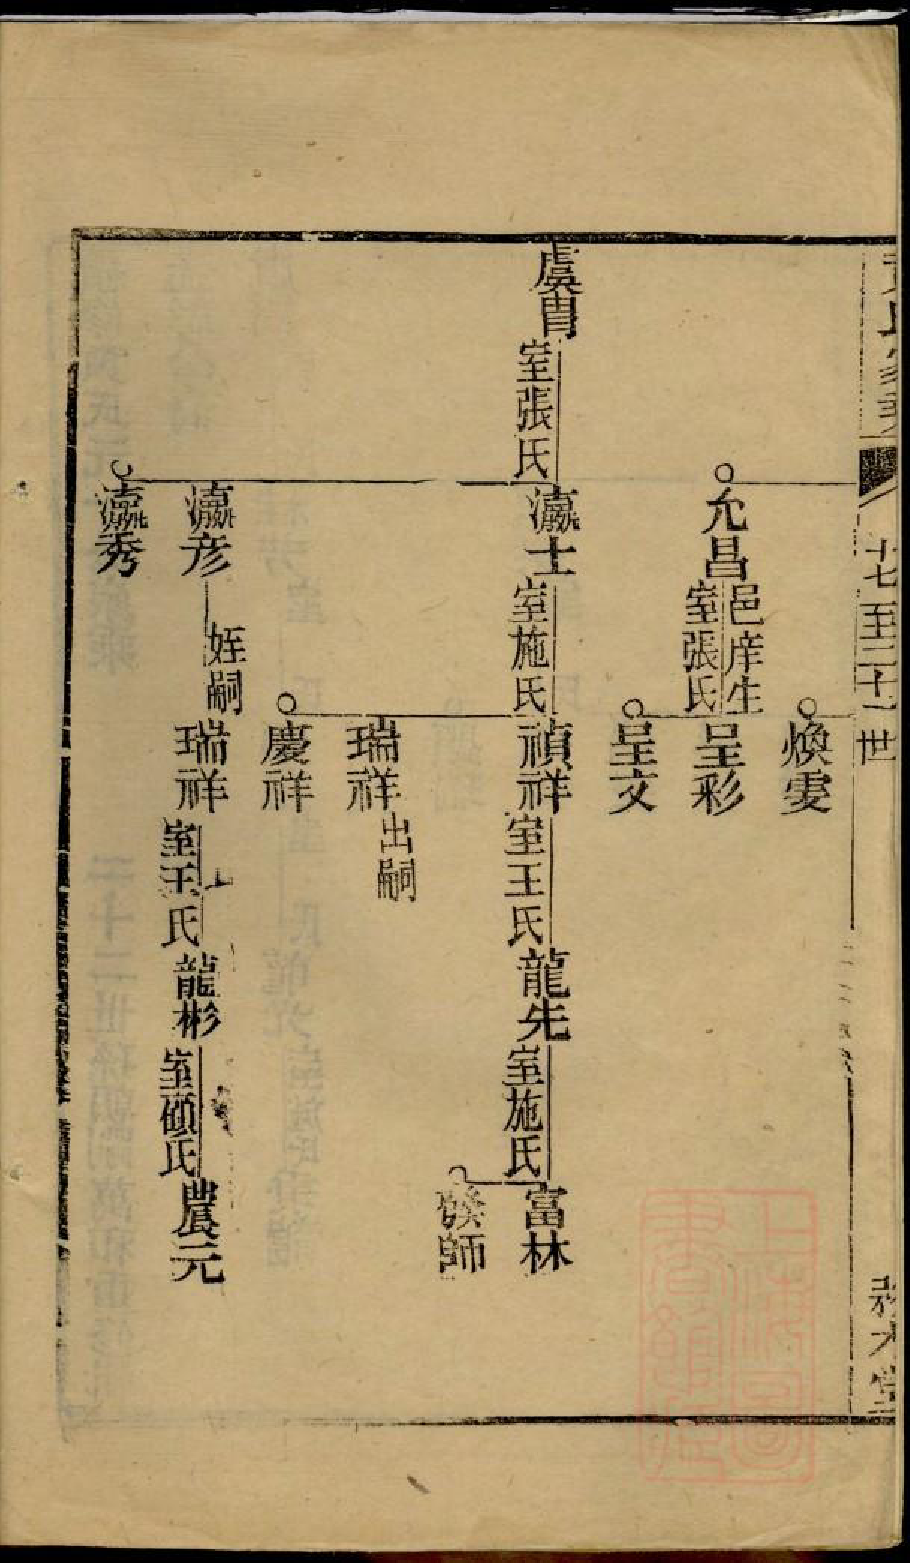 十七至二十一世
煥雯
允昌 邑庠生 室張氏
呈彩
呈文
虞胄 室張氏
瀛士 室施氏
禎祥 室王氏
龍先 室施氏
富林
發師
瑞祥 出嗣
慶祥
瀛彦 姪嗣
瑞祥 室王氏
龍彬 室顧氏
農元
瀛秀